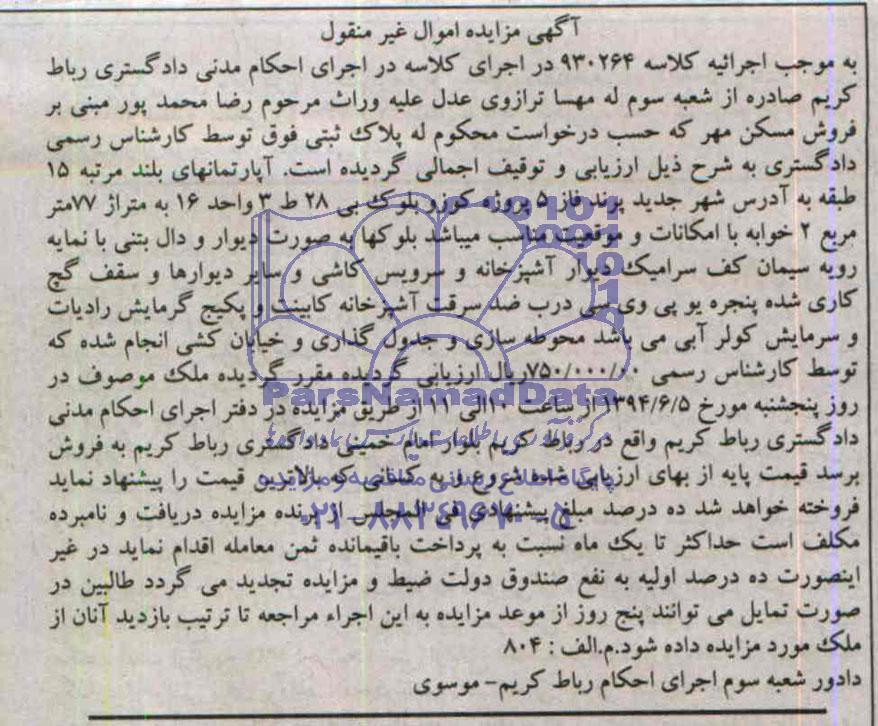 آگهی مزایده اموال غیر منقول
به موجب اجرائیه کلاسه ۹۳۰۲۶۴ در اجرای کلاسه در اجرای احکام مدنی دادگستری رباط
کریم صادره از شعبه سوم له مهسا ترازوی عدل علیه وراث مرحوم رضا محمد پور مبنی بر
فروش مسکن مهر که حسب درخواست محکوم له پلاک ثبتی فوق توسط کارشناس رسمی
دادگستری به شرح ذیل ارزیابی و توقیف اجمالی گردیده است. آپارتمانهای بلند مرتبه ۱۵
طبقه به آدرس شهر جدید پرند فاز ۵ پروژه کوزو بلوک بی ۲۸ ط ۳ واحد ۱۶ به متراژ ۷۷متر
مربع ۲ خوابه با امکانات و موقعیت مناسب میباشد بلوکها به صورت دیوار و دال بتنی با نمایه
رویه سیمان کف سرامیک دیوار آشپزخانه و سرویس کاشی و سایر دیوارها و سقف گچ
کاری شده پنجره یو پی وی سی درب ضد سرقت آشپزخانه کابینت و پکیج گرمایش رادیات
و سرمایش کولر آبی می باشد محوطه سازی و جدول گذاری و خیابان کشی انجام شده که
توسط کارشناس رسمی ۷۵۰/۰۰۰/۰۰ریال ارزیابی گردیده مقرر گردیده ملک موصوف در
روز پنجشنبه مورخ ۱۳۹۴/۶/۵ از ساعت ۱۰الی ۱۱ از طریق مزایده در دفتر اجرای احکام مدنی
دادگستری رباط کریم واقع در رباط کریم بلوار امام خمینی دادگستری رباط کریم به فروش
برسد قیمت پایه از بهای ارزیابی شده شروع و به کسانی که بالاترین قیمت را پیشنهاد نماید
فروخته خواهد شد ده درصد مبلغ پیشنهادی فی المجلس از برنده مزایده دریافت و نامبرده
مکلف است حداکثر تا یک ماه نسبت به پرداخت باقیمانده ثمن معامله اقدام نماید در غیر
اینصورت ده درصد اولیه به نفع صندوق دولت ضبط و مزایده تجدید می گردد طالبین در
صورت تمایل می توانند پنج روز از موعد مزایده به این اجراء مراجعه تا ترتیب بازدید آنان از
ملک مورد مزایده داده شود.م.الف : ۸۰۴
دادور شعبه سوم اجرای احکام رباط کریم- موسوی
ParsNamadData
پایگاه اطلاع رسانی مناقصه و مزایده
۰۲۱-۸۸۳۴۹۶۷۰-۵